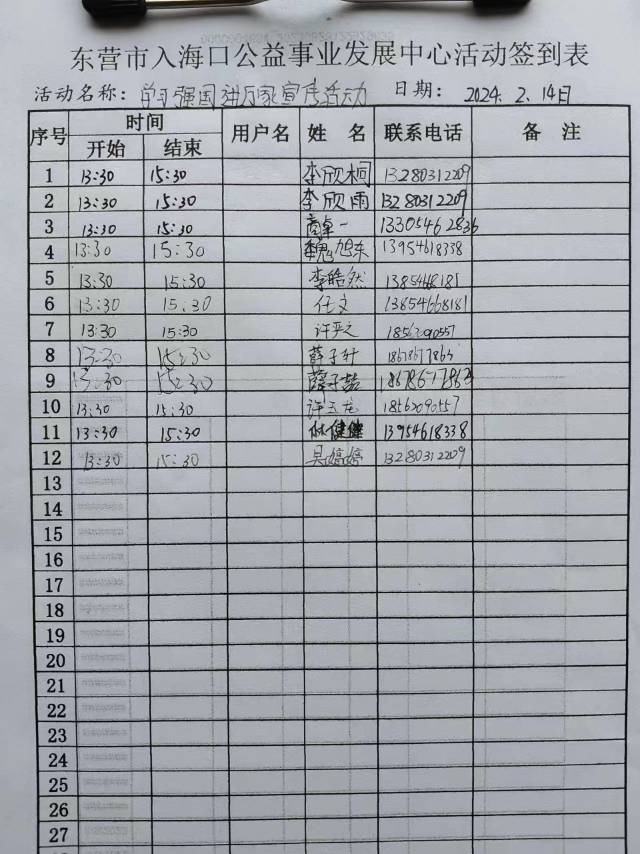 东营市入海口公益事业发展中心活动签到表
活动名称: 学习强国进万家宣传活动 日期: 2024. 2. 14日
序号 时间 用户名 姓 名 联系电话 备 注
开始 结束
1 13:30 15:30 李欣桐 13280312209
2 13:30 15:30 李欣雨 13280312209
3 13:30 15:30 商卓一 13305462836
4 13:30 15:30 魏旭东 13954618338
5 13:30 15:30 李皓然 1385468181
6 13:30 15:30 任文 13854668181
7 13:30 15:30 许平之 18562090557
8 13:30 15:30 薛子轩 18678677863
9 13:30 15:30 薛子喆 18678677863
10 13:30 15:30 许玉龙 18562090557
11 13:30 15:30 林健健 13954618338
12 13:30 15:30 吴婷婷 13280312209
13
14
15
16
17
18
19
20
21
22
23
24
25
26
27